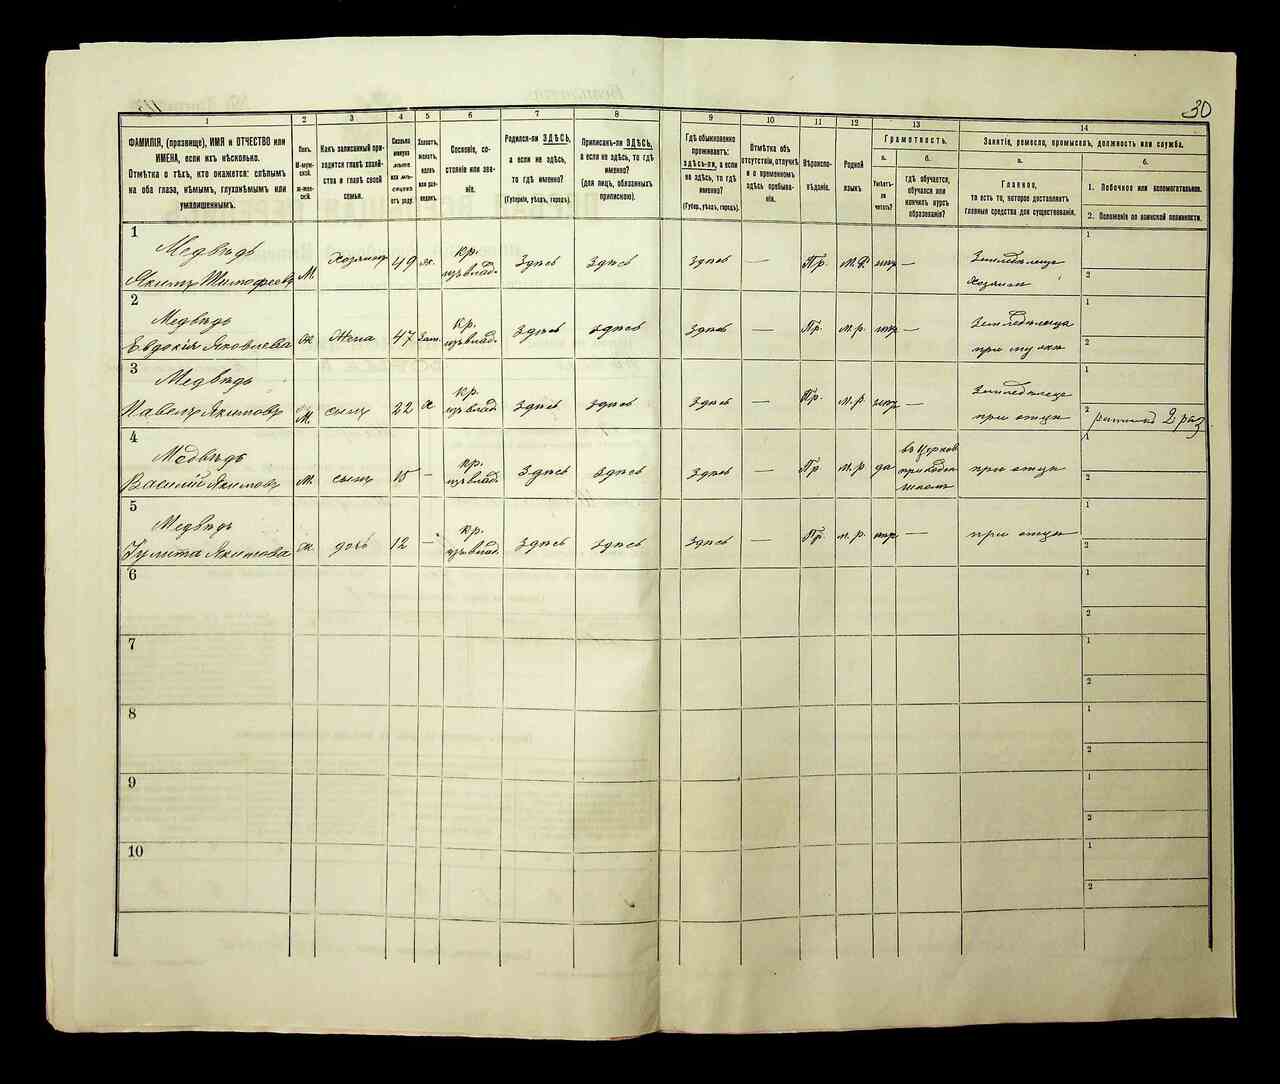 30
1
2
3
4
5
6
7
8
9
10
11
12
13
14
ФАМИЛІЯ, (прозвище), ИМЯ и ОТЧЕСТВО или
ИМЕНА, если ихъ нѣсколько.
Отмѣтка о тѣхъ, кто окажется: слѣпымъ
на оба глаза, нѣмымъ, глухонѣмымъ или
умалишеннымъ.
Полъ.
М-муж-
ской.
Ж-жен-
скій.
Какъ записанный при-
ходится главѣ хозяй-
ства и главѣ своей
семьи.
Сколько
минуло
лѣтъ
или мѣ-
сяцевъ
отъ роду.
Холостъ,
женатъ,
вдовъ
или раз-
веденъ.
Сословіе, со-
стояніе или зва-
ніе.
Родился-ли ЗДѢСЬ,
а если не здѣсь,
то гдѣ именно?
(Губернія, уѣздъ, городъ).
Приписанъ-ли ЗДѢСЬ,
а если не здѣсь, то гдѣ
именно?
(для лицъ, обязанныхъ
припискою).
Гдѣ обыкновенно
проживаетъ:
здѣсь-ли, а если
не здѣсь, то гдѣ
именно?
(Губер., уѣздъ, городъ).
Отмѣтка объ
отсутствіи, отлучкѣ
и о временномъ
здѣсь пребыва-
ніи.
Вѣроиспо-
вѣданіе.
Родной
языкъ
Грамотность.
а.
Умѣетъ-
ли
читать?
б.
гдѣ обучается,
обучался или
кончилъ курсъ
образованія?
Занятіе, ремесло, промыселъ, должность или служба.
а.
Главное,
то есть то, которое доставляетъ
главныя средства для существованія.
б.
1. Побочное или вспомогательное.
2. Положеніе по воинской повинности.
1
Медвѣдь
Якимъ Тимофеевъ М Хозяинъ 49 ж кр. изъ влад. Здѣсь Здѣсь Здѣсь — Пр. М.Р. нѣтъ — Земледѣлецъ
хозяинъ
1
2
2
Медвѣдь
Евдокія Яковлева Ж Жена 47 Зам. кр. изъ влад. Здѣсь Здѣсь Здѣсь — Пр. м.р. нѣтъ — Земледѣлица
при мужѣ
1
2
3
Медвѣдь
Павелъ Якимовъ М. сынъ 22 х кр. изъ влад. Здѣсь Здѣсь Здѣсь — Пр. м.р. нѣтъ — Земледѣлецъ
при отцѣ
1
2 ратникъ 2 раз.
4
Медвѣдь
Василій Якимовъ м. сынъ 15 — кр. изъ влад. Здѣсь Здѣсь Здѣсь — Пр м.р да въ Церков
приходск
школѣ
при отцѣ
1
2
5
Медвѣдь
Улита Якимова ж. дочь 12 — кр. изъ влад. Здѣсь Здѣсь Здѣсь — Пр. м.р. нѣтъ — при отцѣ
1
2
6
1
2
7
1
2
8
1
2
9
1
2
10
1
2